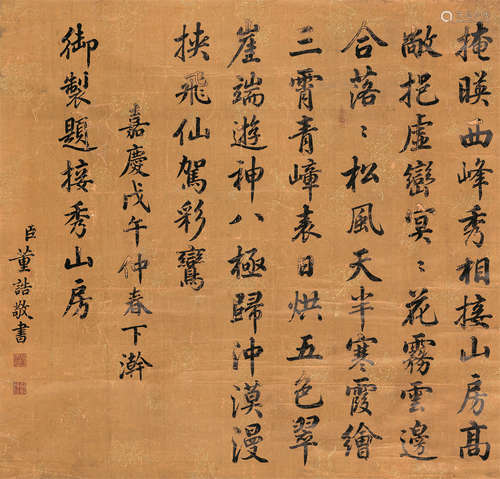 掩暎西峰秀相接山房高
敞挹虛巒冥〻花霧雲邊
合落〻松風天半寒霞繪
三霄青嶂表日烘五色翠
崖端遊神八極歸沖漠漫
挾飛仙駕彩鸞
嘉慶戊午仲春下澣
御製題接秀山房
臣董誥敬書